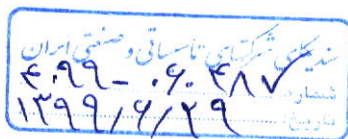 سندیکای شرکتهای تاسیساتی و صنعتی ایران
شماره: ۴۰۹۹-۰۶۰۴۸۷
تاریخ: ۱۳۹۹/۶/۲۹